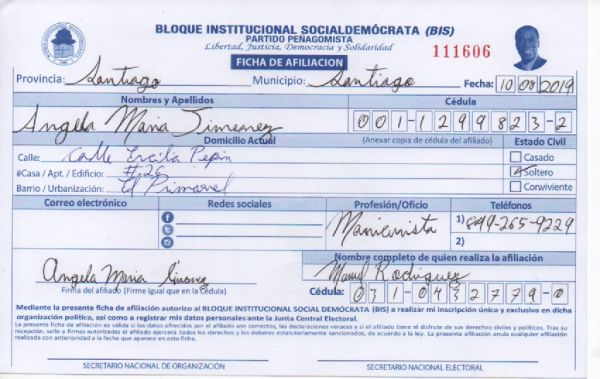 BLOQUE INSTITUCIONAL SOCIALDEMÓCRATA (BIS)
PARTIDO PEÑAGOMISTA
Libertad, Justicia, Democracia y Solidaridad
111606
FICHA DE AFILIACION
Provincia: Santiago Municipio: Santiago Fecha: 10 08 2019
Nombres y Apellidos Cédula
Angela Maria Jimenez 001-1299823-2
Domicilio Actual (Anexar copia de cédula del afiliado) Estado Civil
Calle: Calle Ercila Pepin Casado
#Casa / Apt. / Edificio: #26 Soltero
Barrio / Urbanización: El Primavel Conviviente
Correo electrónico Redes sociales Profesión/Oficio Teléfonos
Manicurista 1) 849-265-9229
2)
Nombre completo de quien realiza la afiliación
Angela Maria Manuel Rodriguez
Firma del afiliado (Firme igual que en la Cédula) Cédula: 031-0432779-0
Mediante la presente ficha de afiliación autorizo al BLOQUE INSTITUCIONAL SOCIAL DEMÓCRATA (BIS) a realizar mi inscripción única y exclusiva en dicha
organización política, así como a registrar mis datos personales ante la Junta Central Electoral.
La presente ficha de afiliación es válida si los datos ofrecidos por el afiliado son correctos, las declaraciones veraces y si el afiliado tiene el disfrute de sus derechos civiles y políticos. Tras su
recepción, sello y firmas autorizadas el afiliado ejercerá todos los derechos y los deberes estatutariamente sancionados, de acuerdo a la ley. La presente afiliación anula cualquier afiliación
realizada con anterioridad a la fecha que aparece en esta ficha.
SECRETARIO NACIONAL DE ORGANIZACIÓN SECRETARIO NACIONAL ELECTORAL